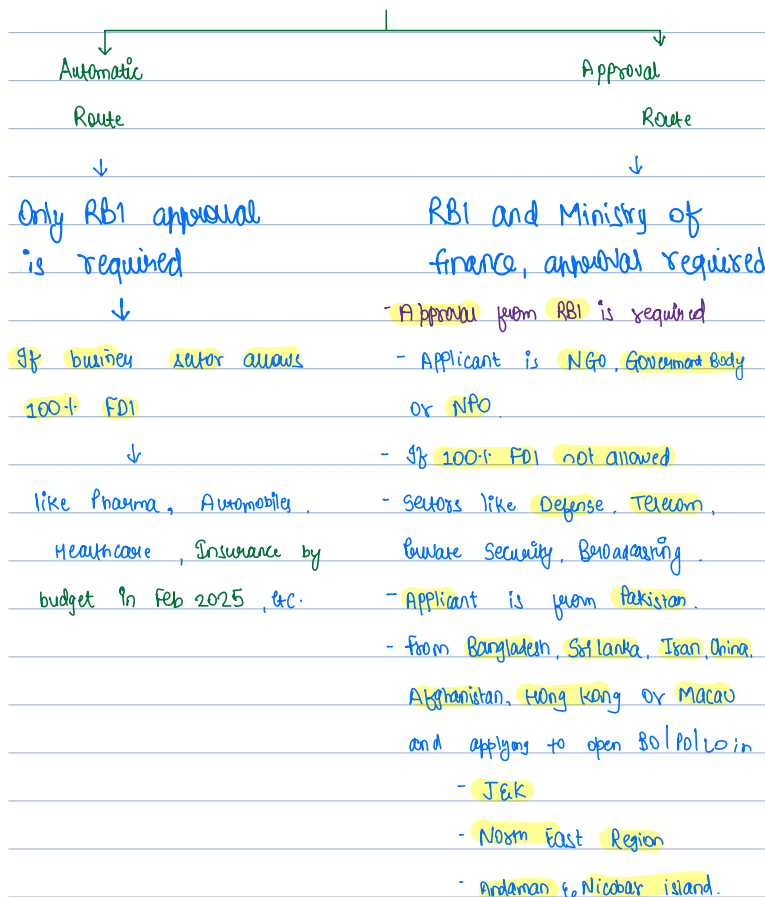 Automatic
Route
Only RBI approval
is required
If business sector allows
100% FDI
like Pharma, Automobiles,
Healthcare, Insurance by
budget in Feb 2025, etc.
Approval
Route
RBI and Ministry of
finance, approval required
- Approval from RBI is required
- Applicant is NGO, Government Body
or NPO.
- If 100% FDI not allowed
- Sectors like Defense, Telecom,
Private Security, Broadcasting.
- Applicant is from Pakistan.
- from Bangladesh, Sri lanka, Iran, China,
Afghanistan, Hong Kong or Macau
and applying to open BO/PO/LO in
- J&K
- North East Region
- Andaman & Nicobar island.